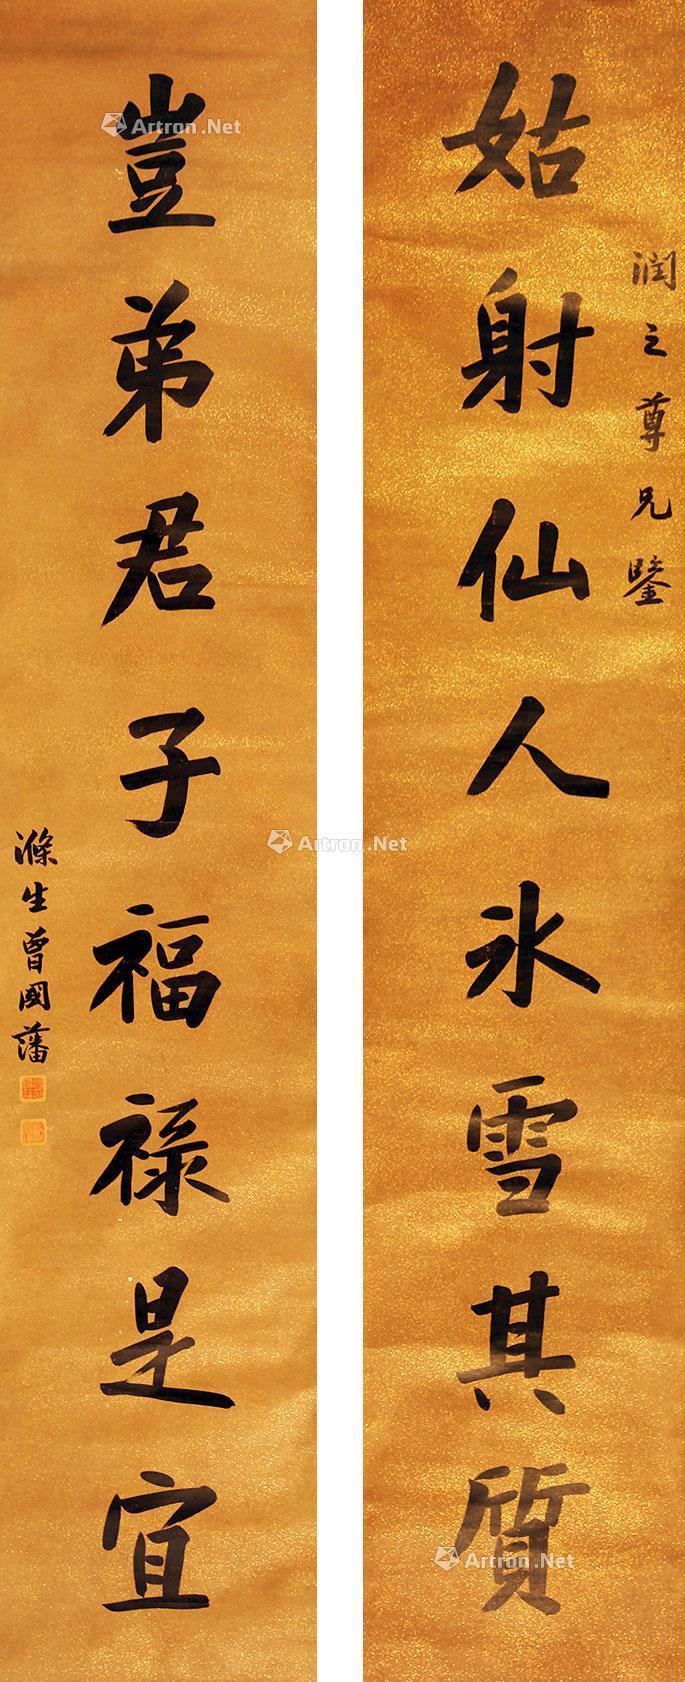 润之尊兄鑒
姑射仙人氷雪其質
豈弟君子福禄是宜
滌生曾國藩
Artron.Net
Artron.Net
Artron.Net